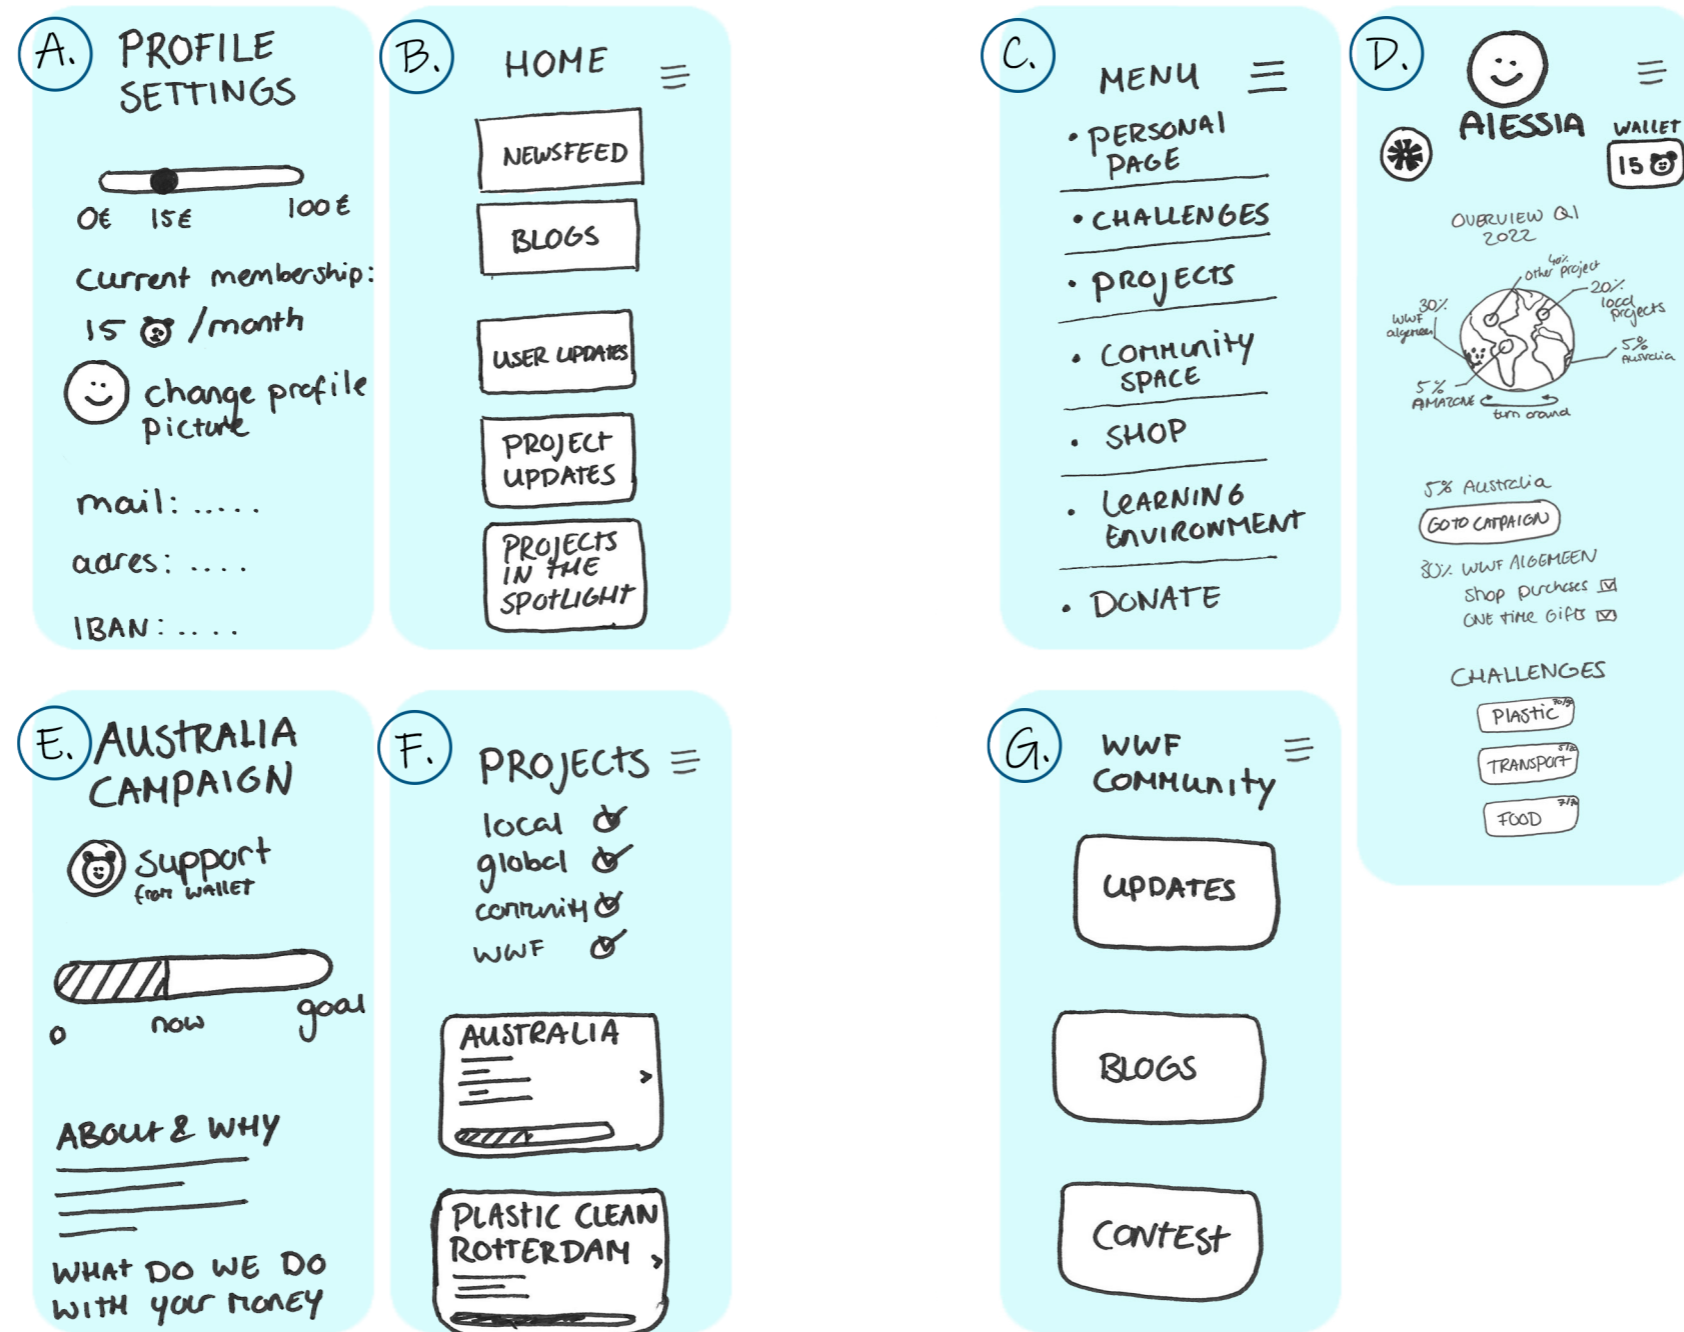 A.
PROFILE
SETTINGS
0€ 15€ 100€
Current membership:
15 /month
change profile
picture
mail: .....
adres: ....
IBAN: ....
B.
HOME
NEWSFEED
BLOGS
USER UPDATES
PROJECT
UPDATES
PROJECTS
IN THE
SPOTLIGHT
C.
MENU
• PERSONAL
PAGE
• CHALLENGES
• PROJECTS
• COMMUNITY
SPACE
• SHOP
• LEARNING
ENVIRONMENT
• DONATE
D.
AlESSIA
WALLET
15
OVERVIEW Q1
2022
40%
other project
20%
local
projects
30%
WWF
algemeen
5%
Australia
5%
AMAZONE
turn around
5% Australia
GO TO CAMPAIGN
30% WWF AlGEMEEN
Shop purchases
ONE time Gifts
CHALLENGES
PLAStic
TRANSPORT
FOOD
E.
AUSTRALIA
CAMPAIGN
Support
from WALLET
0 now goal
ABOUT & WHY
WHAT DO WE DO
WITH your MONEY
F.
PROJECTS
local
global
community
WWF
AUSTRALIA
>
PLASTIC CLEAN
ROTTERDAM
>
G.
WWF
COMMUNITY
UPDATES
BLOGS
CONTEST